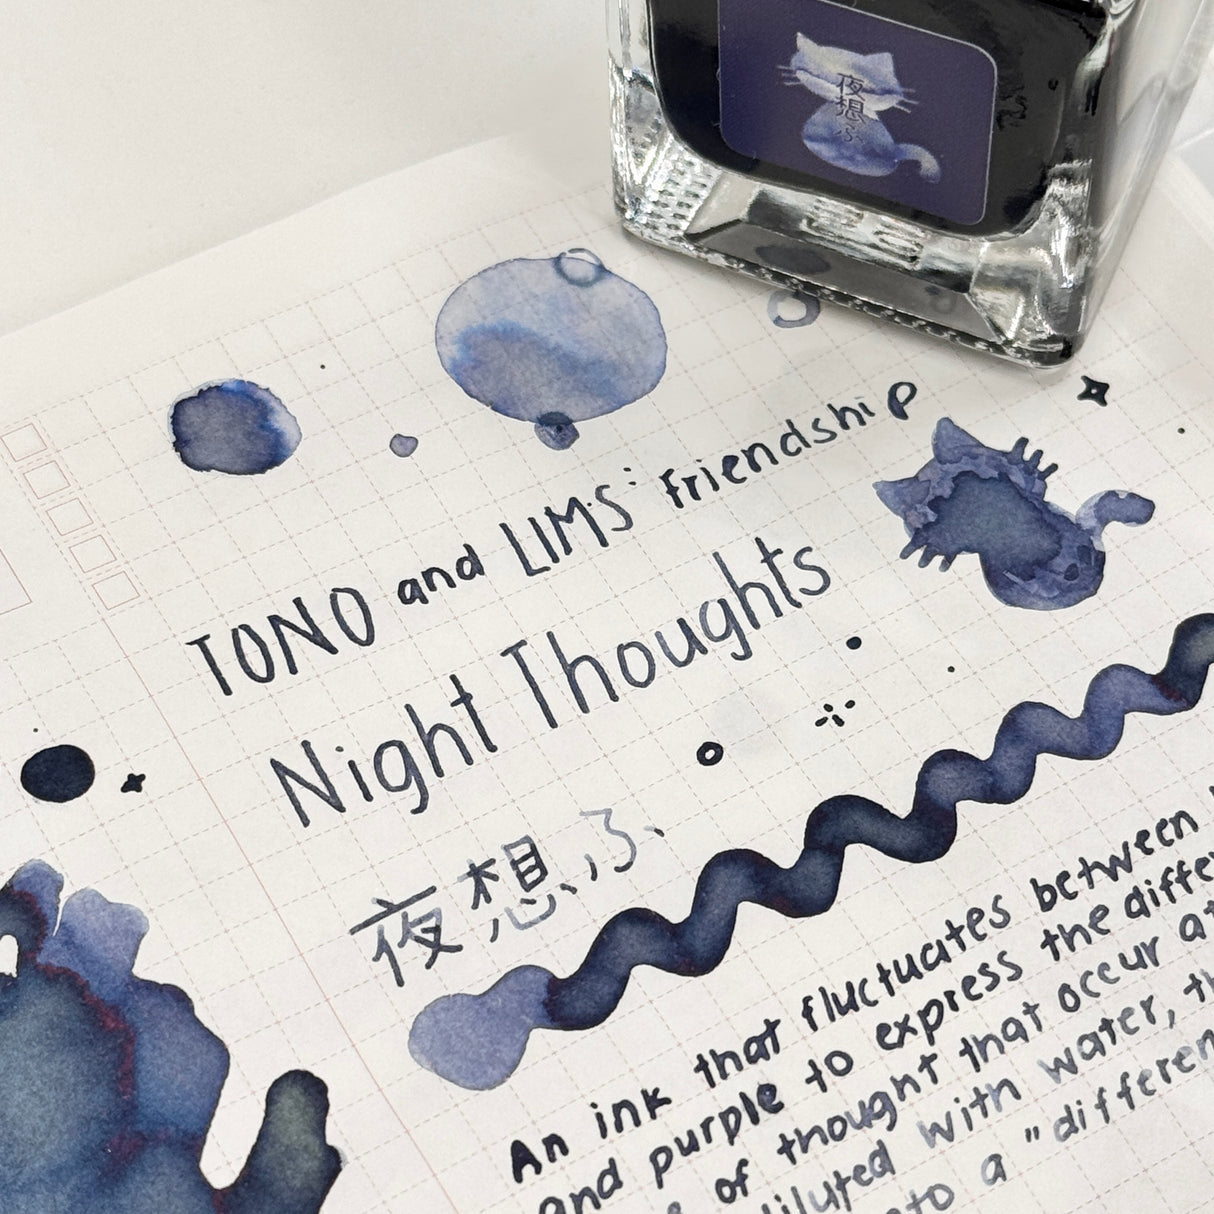 夜
想
ふ
TONO and LIMS: Friendship
Night Thoughts
夜想ふ
An ink that fluctuates between
and purple to express the
of thought that occur
diluted with water,
to a "different